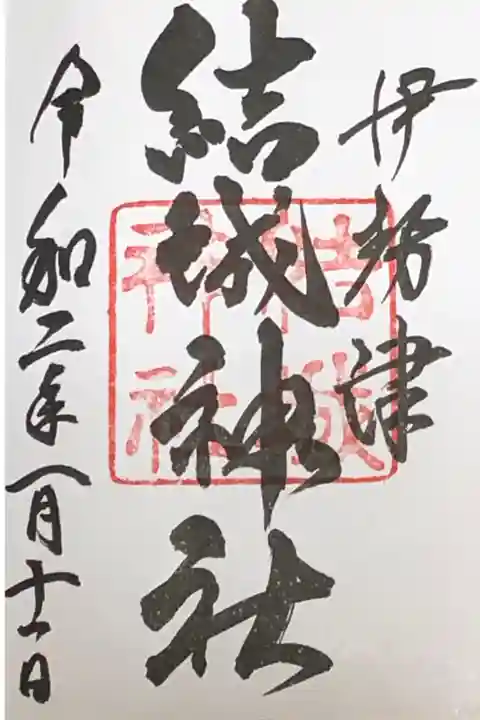 伊勢津
結城神社
結城
神社
令和二年一月十一日